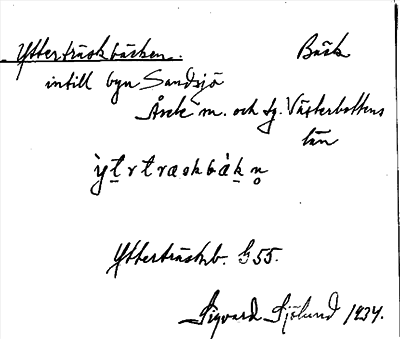 Ytterträskbäcken. Bäck
intill byn Sandsjö
Åsele m. och tg. Västerbottens
län
ỳt̲rtraskbàk̲n̥
Ytterträskb. G55.
Sigvard Sjölund 1934.